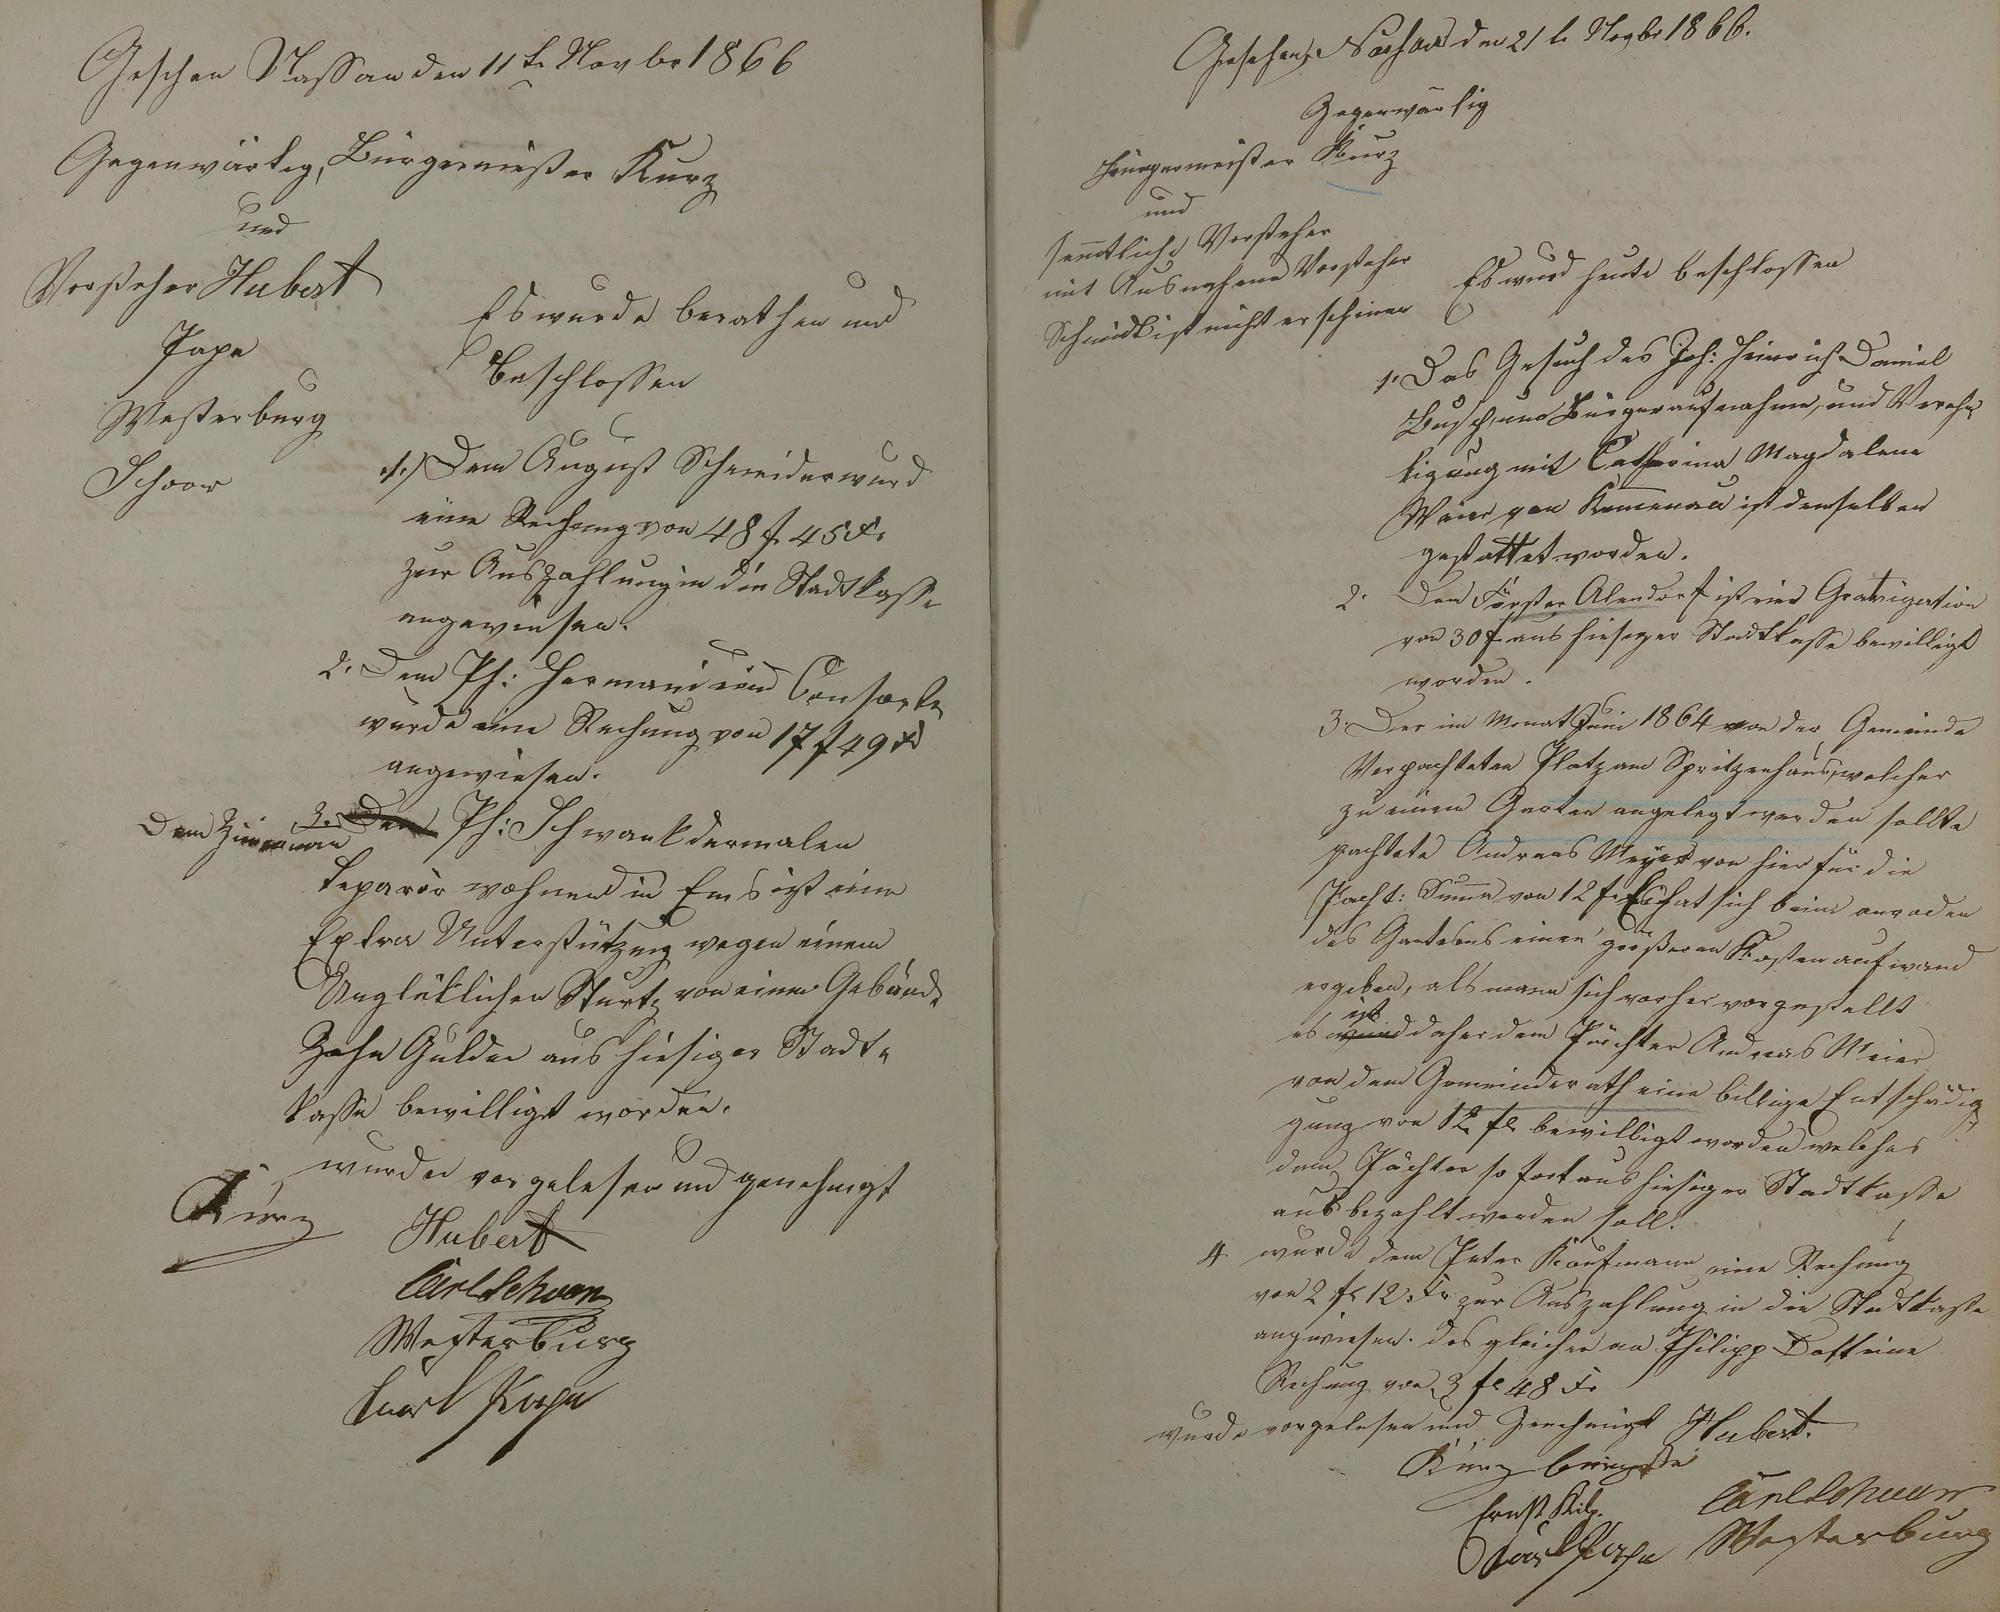 Geschen Nassau den 11t. Novbr 1866
Gegenwärtig, Bürgermeister Kurz
und
Vorsteher Hubert
Pape
Westerburg
Schoor
Es wurde berathen und
Beschlossen
1.) Dem August Schneider wurd
eine Rechnung von 48 f. 45 Xr
zur Auszahlung in die Stadtkasse
angewiesen.
2. Dem Ph: Hermani und Consorte
wurde eine Rechnung von 17 f 49 Xr
angewiesen.
Dem Zimerman 3. Dem Ph: Schwank dermalen
wohnend in Ems ist eine
Extra Unterstützung wegen einem
Unglüklichen Sturtz von einem Gebäude
Zehn Gulden aus hiesiger Stadt-
kasse bewilligt worden.
wurde vorgelesen und genehmigt
Kurz
Hubert
Carl Schoor
Westerburg
Carl Pape
Geschen, Nassau den 21t. Novbr 1866.
Gegenwärtig
Bürgermeister Kurz
und
sämtliche Vorsteher
mit Ausnahme Vorsteher
Schmidt ist nicht erschinen
Es wurd heute beschlossen
1. Das Gesuch des Joh: Heinrich Daniel
Busch, um Bürgeraufnahme, und Verehe-
ligung mit Catharina Magdalena
Maier von Kemenau ist demselben
gestattet worden.
2. Dem Förster Alendorf ist eine Gratigation
von 30 f aus hiesiger Stadtkasse bewilligt
worden.
3. Der im Monat Juni 1864 von der Gemeinde
Verpachteten Platz am Spritzenhaus, welcher
zu einem Garten angelegt werden sollte
pachtete Andreas Meyer von hier für die
Pacht: Summe von 12 f. Es hat sich beim anroden
des Gartens einen größeren Kostenaufwand
ergeben, als mann sich vorher vorgestellt
es wurd ist daher dem Pächter Andreas Meier
von dem Gemeinderath eine billige Entschädig-
gung von 12 fl bewilligt worden welches
dem Pächter sofort aus hiesiger Stadtkasse
ausbezahlt werden soll.
4. wurde dem Peter Kaufmann eine Rechnung
von 2 fl 12 Xr zur Auszahlung in die Stadtkasse
angwiesen. desgleichen an Philipp Dott eine
Rechnung von 3 fl 48 Xr
wurde vorgelesen und Genehmigt Hubert.
Kurz Brmgstr
Ernst
Carl Schoor
Carl Pape Westerburg